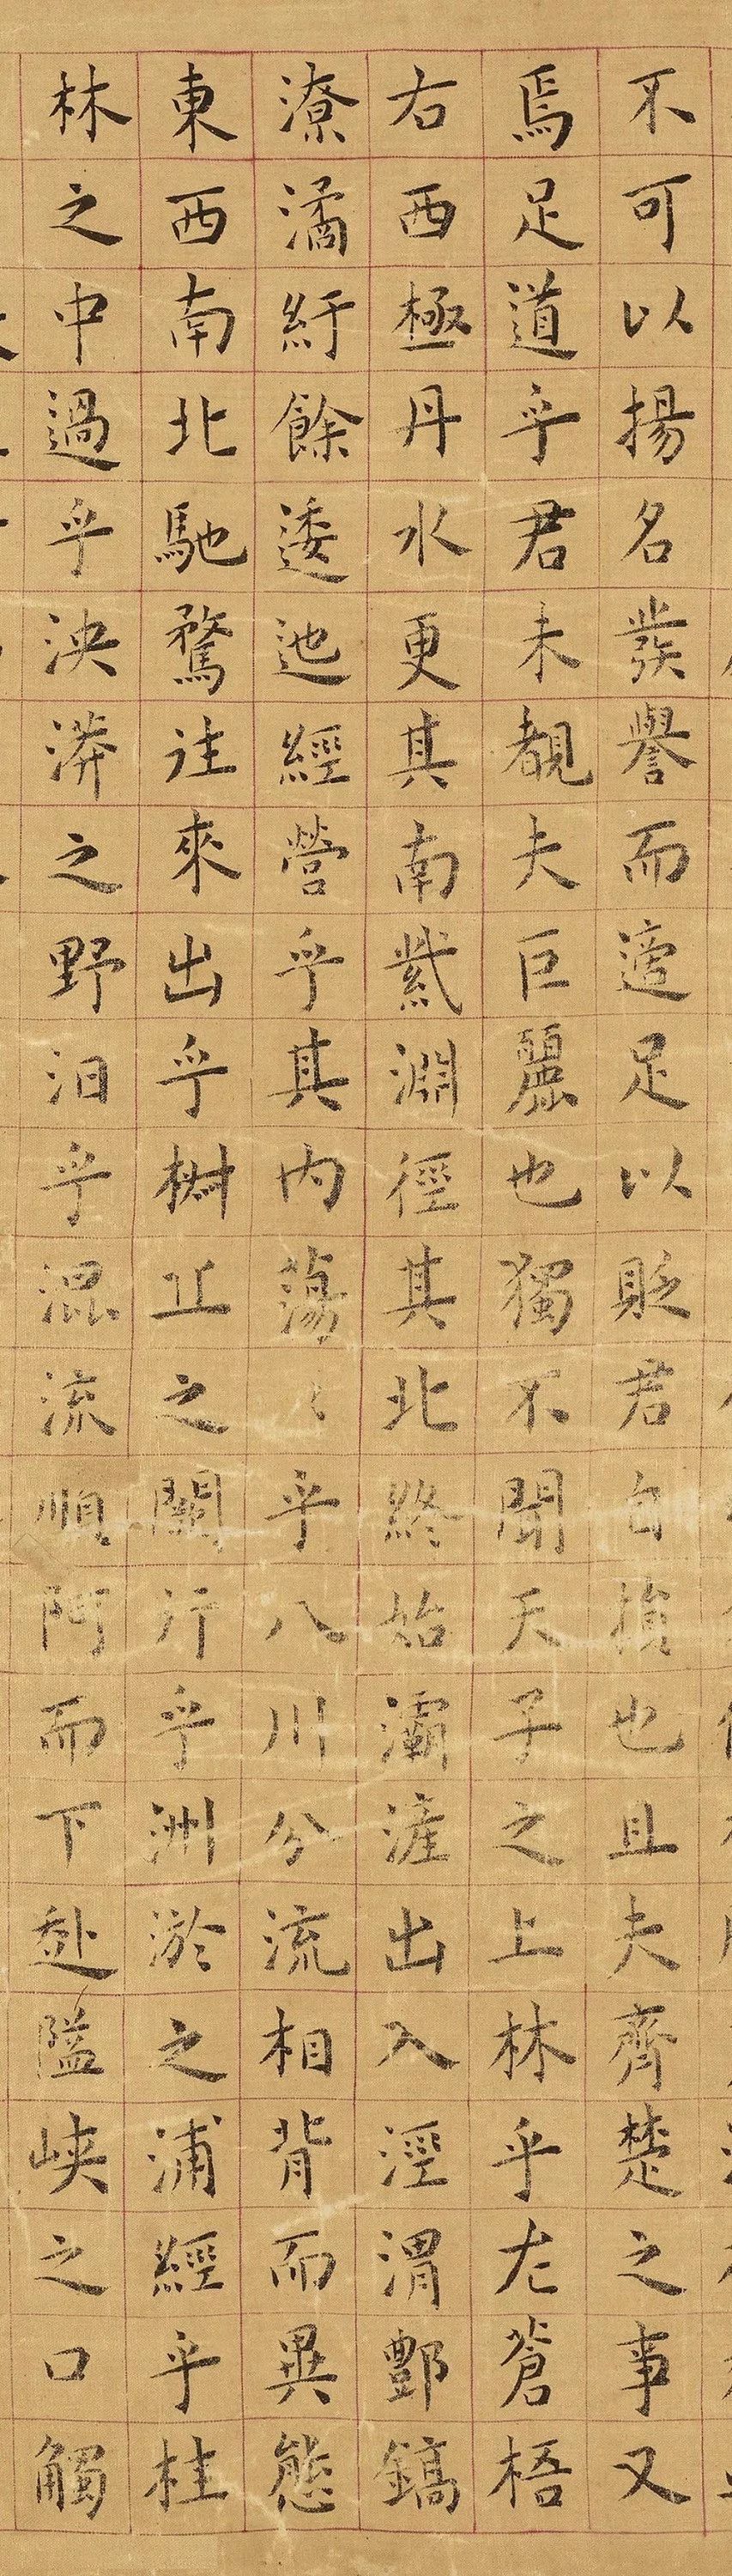 不可以揚名發譽而適足以貶君自損也且夫齊楚之事又
焉足道乎君未覩夫巨麗也獨不聞天子之上林乎左蒼梧
右西極丹水更其南紫淵徑其北終始灞滻出入涇渭酆鎬
潦潏紆餘逶迤經營乎其內蕩〻乎八川分流相背而異態
東西南北馳騖往來出乎椒丘之闕行乎洲淤之浦經乎桂
林之中過乎泱漭之野汨乎混流順阿而下赴隘峽之口觸